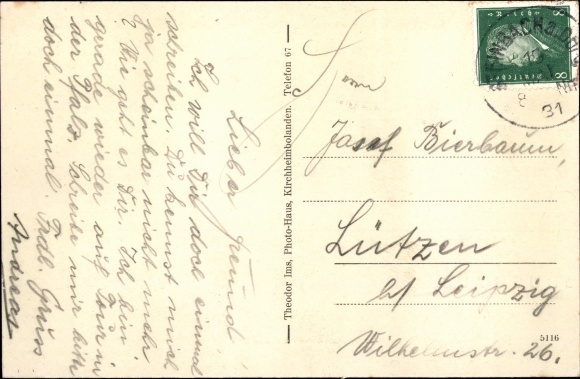 Lieber Freund!
Ich will Dir doch einmal
schreiben. Du kennst mich
ja scheinbar nicht mehr
? Wie geht es Dir. Ich bin
gerade wieder auf Tour in
der Pfalz. Schreibe mir bitte
doch einmal. Frdl. Gruss
Andreas
Theodor Ims, Photo-Haus, Kirchheimbolanden. Telefon 67
8 8
Deutsches
31
Josef Bierbaum,
Lützen
b/ Leipzig
Wilhelmstr. 26.
5116